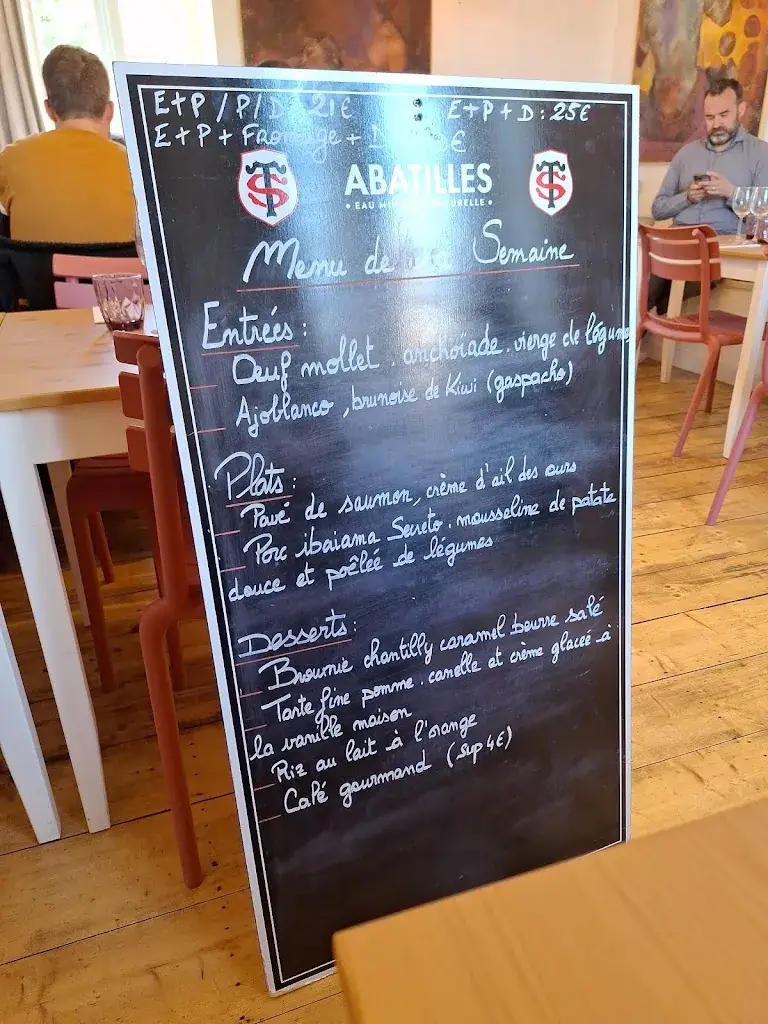 E+P / P/D : 21€ E+P+D : 25€
E+P+Fromage + D €
ABATILLES
• EAU NATURELLE •
Menu de Semaine
Entrées :
Oeuf mollet . anchoïade . vierge de légumes
Ajoblanco , brunoise de Kiwi (gaspacho)
Plats :
Pavé de saumon, crème d'ail des ours
Porc ibaiama Secreto . mousseline de patate
douce et poêlée de légumes
Desserts :
Brownie chantilly caramel beurre salé
Tarte fine pomme . canelle et crème glaceé à
la vanille maison
Riz au lait à l'orange
Café gourmand (sup 4€)